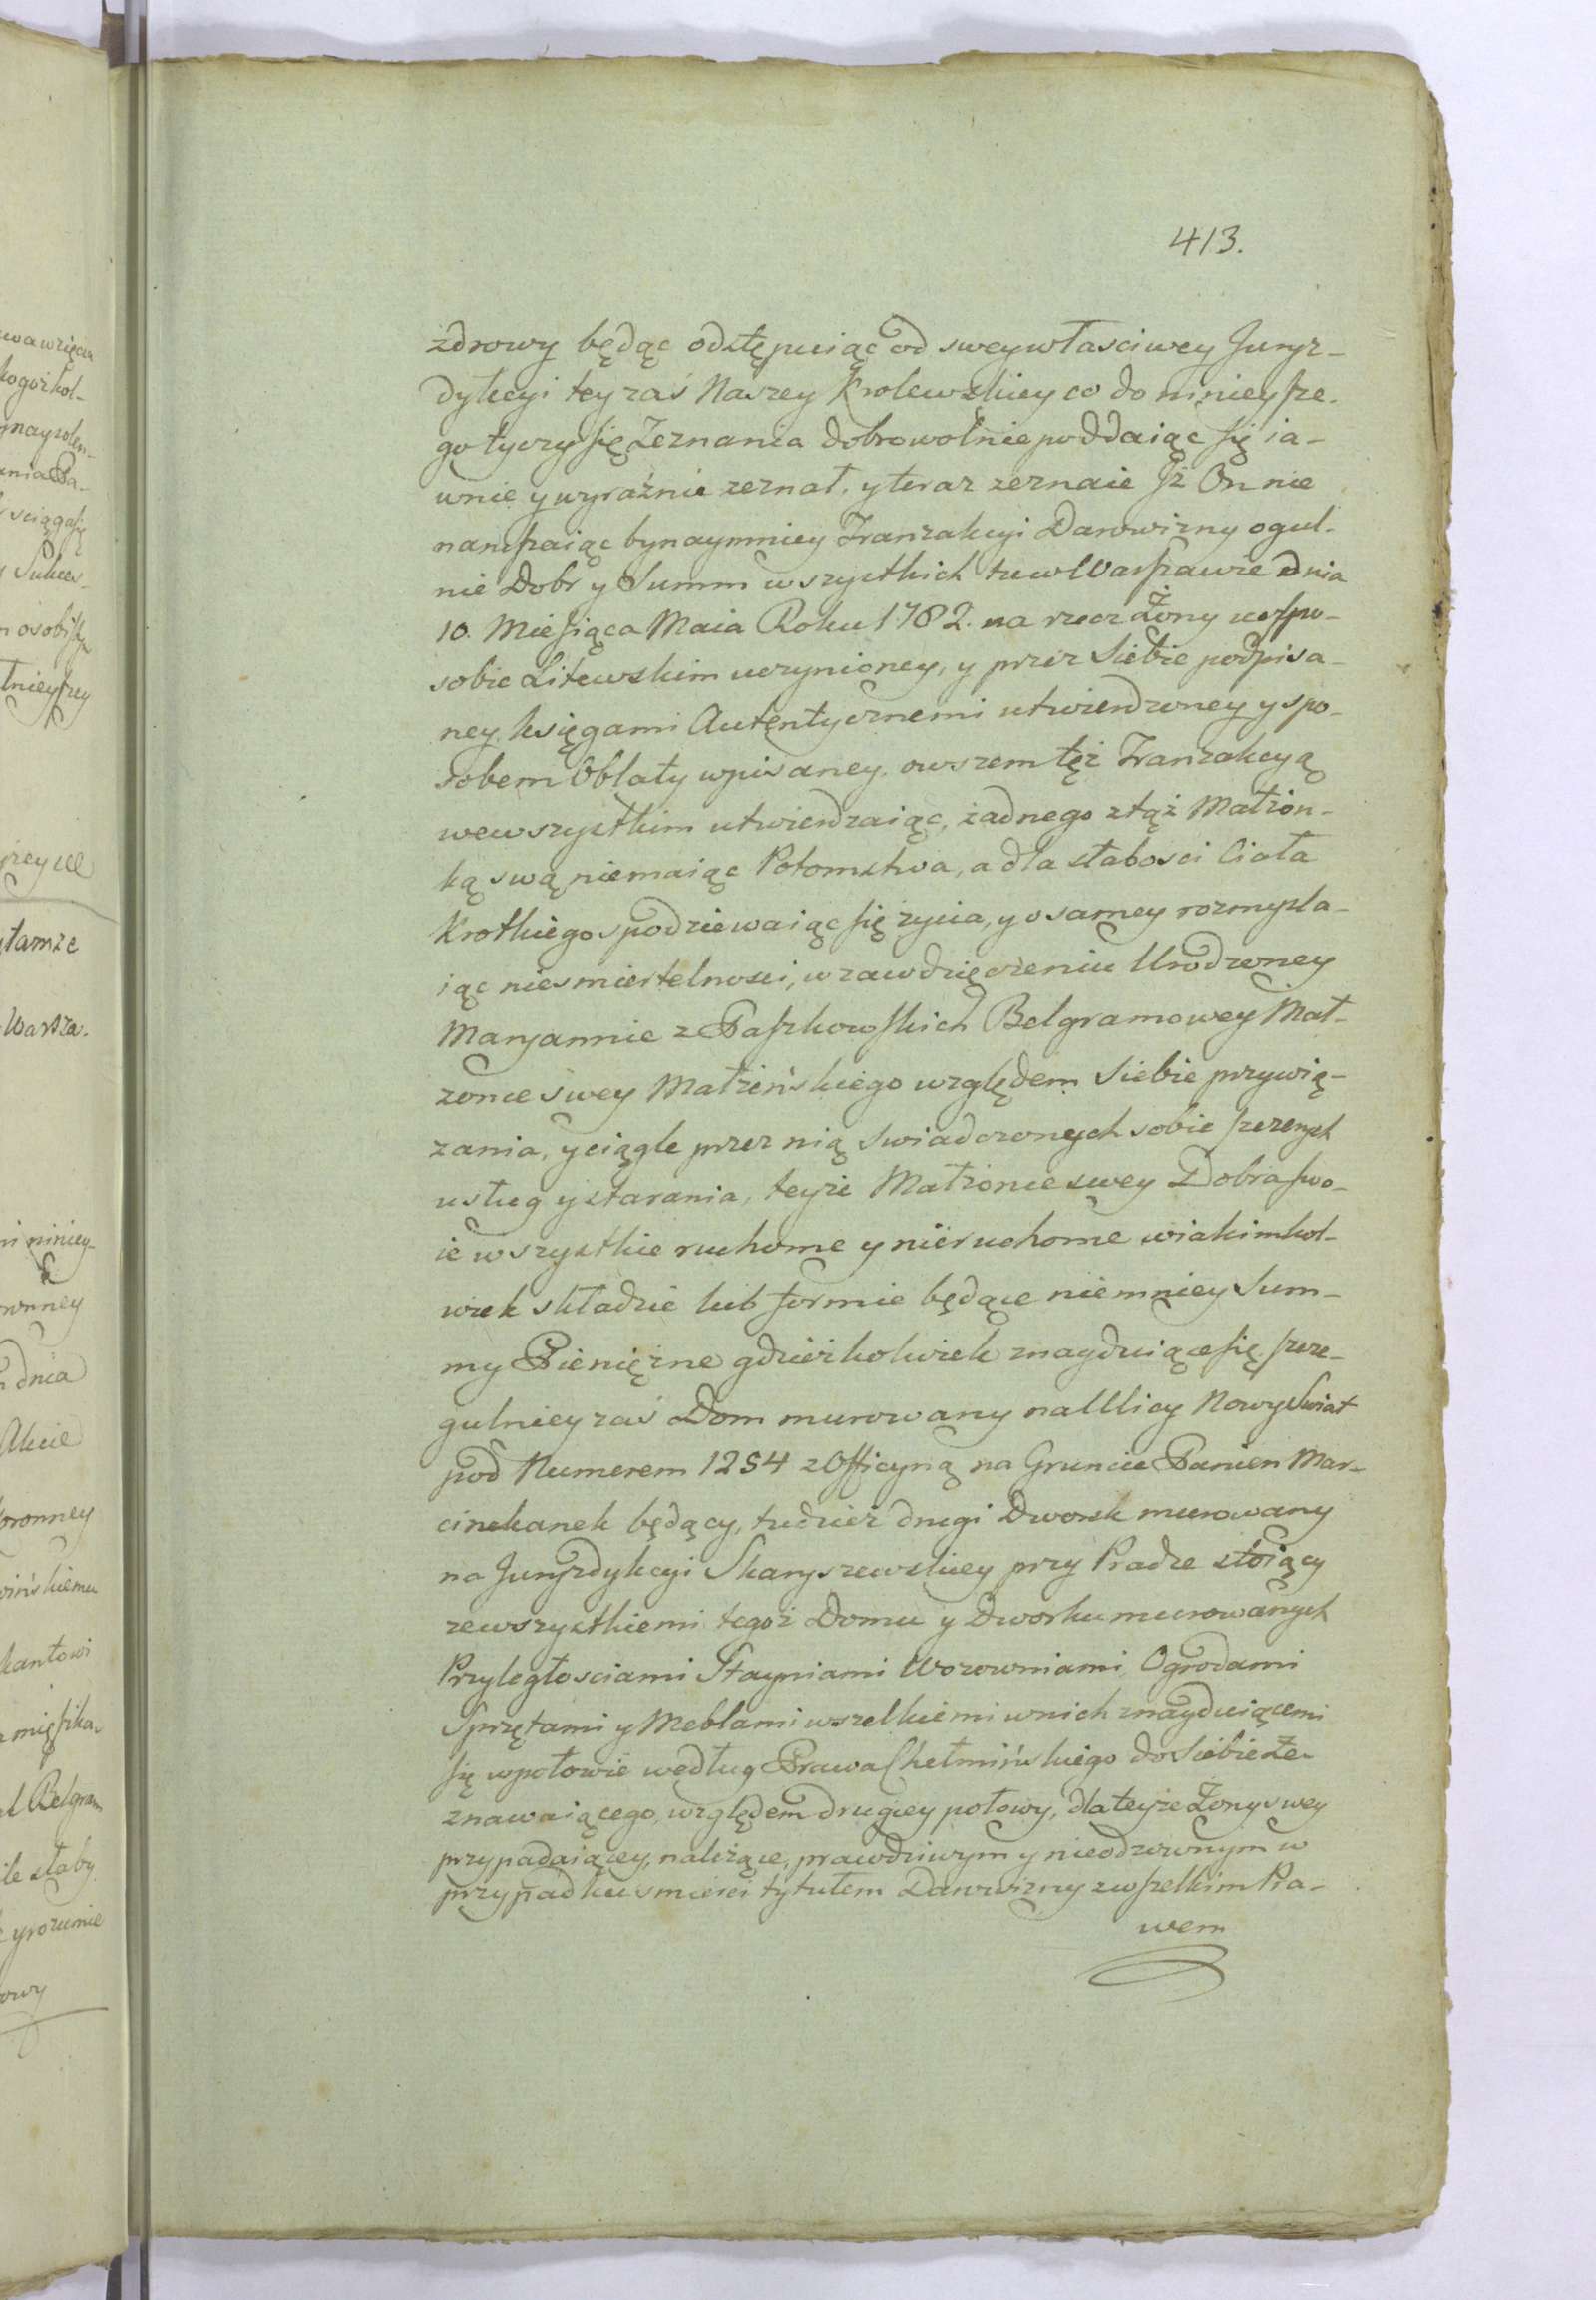 413.
zdrowy będąc odstępuiąc od swey własciwey Juryz-
dykcyi tey zaś Naszey Krolewskiey co do ninieysze-
go tyczy się Zeznania dobrowolnie poddaiąc się ia-
wnie y wyraźnie zeznał, y teraz zeznaie Jż On nie
narusząiąc bynaymniey Tranzakcyi Darowizny ogul-
nie Dobr y Summ wszystkich tu w Warszawie dnia
10. Miesiąca Maia Roku 1782. na rzecz Żony uespo-
sobie Litewskim uczynioney, y przez Siebie podpisa-
ney. księgami Autentycznemi utwierdzoney y spo-
sobem Oblaty wpisaney. owszem tęż Tranzakcyą
wewszystkim utwierdzaiąc, żadnego z tąż Małżon-
ką swą niemaiąc Potomstwa, a dla słabosci Ciała
Krotkiego spodziewaiąc się życia, y o samey rozmyśla-
iąc niesmiertelnosci, w zawdzięczeniu Urodzoney
Maryannie z Paszkowskich Belgramowey Mał-
zonce swey Małżeńskiego względem Siebie przywią-
zania, y ciągle przez nią swiadczonych sobie szczerych
usług y starania, teyże Małżonce swey Dobra swo-
ie wszystkie ruchome y nieruchome w iakimkol-
wiek składzie lub formie będące niemniey Sum-
my Pieniężne gdzieżkolwiek znayduiące się szcze-
gulniey zaś Dom murowany na Ulicy Nowy Swiat
pod Numerem 1254 z Officyną na Gruncie Panien Mar-
cinkanek będący, tudzież drugi Dworek murowany
na Juryzdykcyi Skaryszewskiey przy Pradze stoiący
ze wszystkiemi tegoż Domu y Dworku murowanych
Przyległosciami Stayniami Wozowniami, Ogrodami
Sprzętami y Meblami wszelkiemi w nich znayduiącemi
się w połowie według Prawa Chełmińskiego do Siebie Ze-
znawaiącego, względem drugiey połowy, dla teyże Żony swey
przypadaiącey, należące, prawdziwym y nieodzownym w
przypadku smierci tytułem Darowizny z wszelkim Pra-
wem